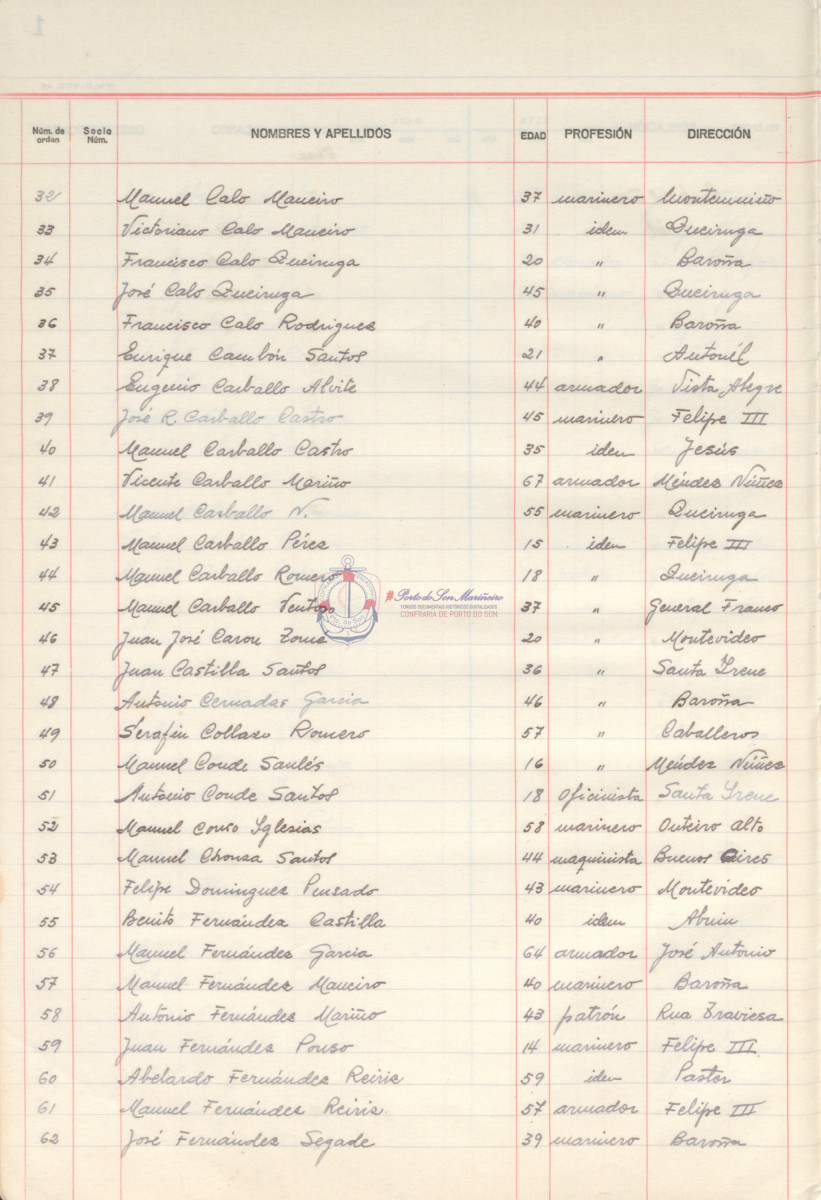 Núm. de orden Socio Núm. NOMBRES Y APELLIDOS EDAD PROFESIÓN DIRECCIÓN
32 Manuel Calo Maneiro 37 marinero Montemuiño
33 Victoriano Calo Maneiro 31 idem Queiruga
34 Francisco Calo Queiruga 20 " Baroña
35 José Calo Queiruga 45 " Queiruga
36 Francisco Calo Rodriguez 40 " Baroña
37 Enrique Cambón Santos 21 "
38 Eugenio Carballo Alvite 44 armador Vista Alegre
39 José R. Carballo Castro 45 marinero Felipe III
40 Manuel Carballo Castro 35 idem Jesús
41 Vicente Carballo Mariño 67 armador Méndez Núñez
42 Manuel Carballo N. 55 marinero Queiruga
43 Manuel Carballo Pérez 15 idem Felipe III
44 Manuel Carballo Romero 18 " Queiruga
45 Manuel Carballo Ventoso 37 " General Franco
#Porto do Son Mariñeiro
FONDOS DOCUMENTAIS HISTÓRICOS DIXITALIZADOS
CONFRARIA DE PORTO DO SON
46 Juan José Carou Tomé 20 " Montevideo
47 Juan Castilla Santos 36 " Santa Irene
48 Antonio Cernadas Garcia 46 " Baroña
49 Serafin Collazo Romero 57 " Caballeros
50 Manuel Conde Saulés 16 " Méndez Núñez
51 Antonio Conde Santos 18 Oficinista Santa Irene
52 Manuel Couso Yglesias 58 marinero Outeiro alto
53 Manuel Chouza Santos 44 maquinista Buenos Aires
54 Felipe Dominguez Pensado 43 marinero Montevideo
55 Benito Fernández Castilla 40 idem Abuin
56 Manuel Fernández Garcia 64 armador José Antonio
57 Manuel Fernández Maneiro 40 marinero Baroña
58 Antonio Fernández Mariño 43 patrón Rua Traviesa
59 Juan Fernández Pouso 14 marinero Felipe III
60 Abelardo Fernández Reiriz 59 idem Pastor
61 Manuel Fernández Reiriz 57 armador Felipe III
62 José Fernández Segade 39 marinero Baroña